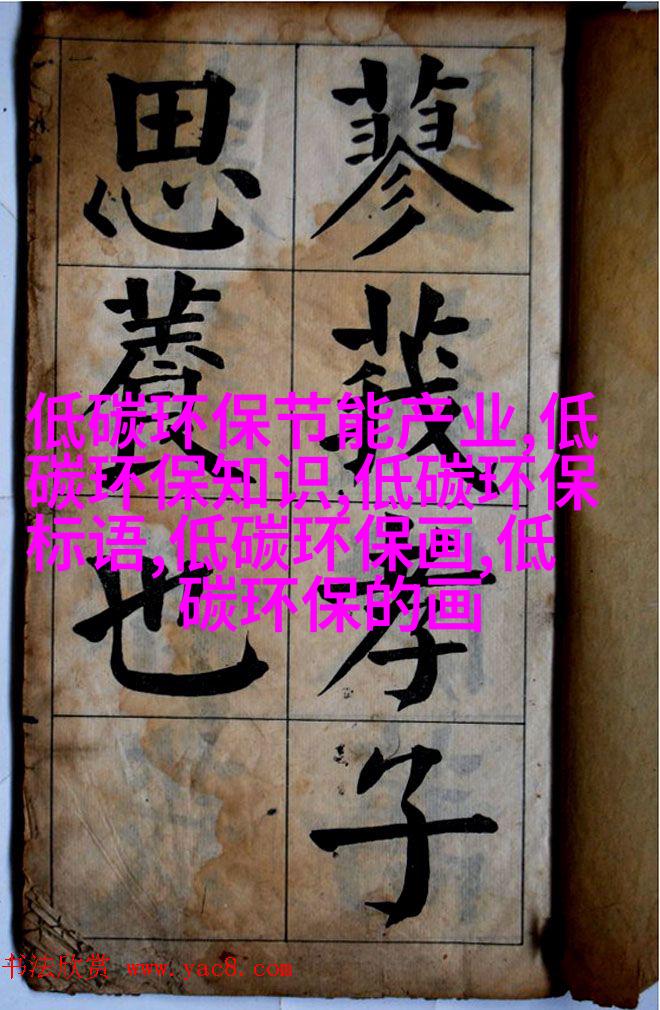 蓼莪孝子
思養也
低碳环保节能产业,低
碳环保知识,低碳环保
标语,低碳环保画,低
碳环保的画
书法欣赏 www.yac8.com